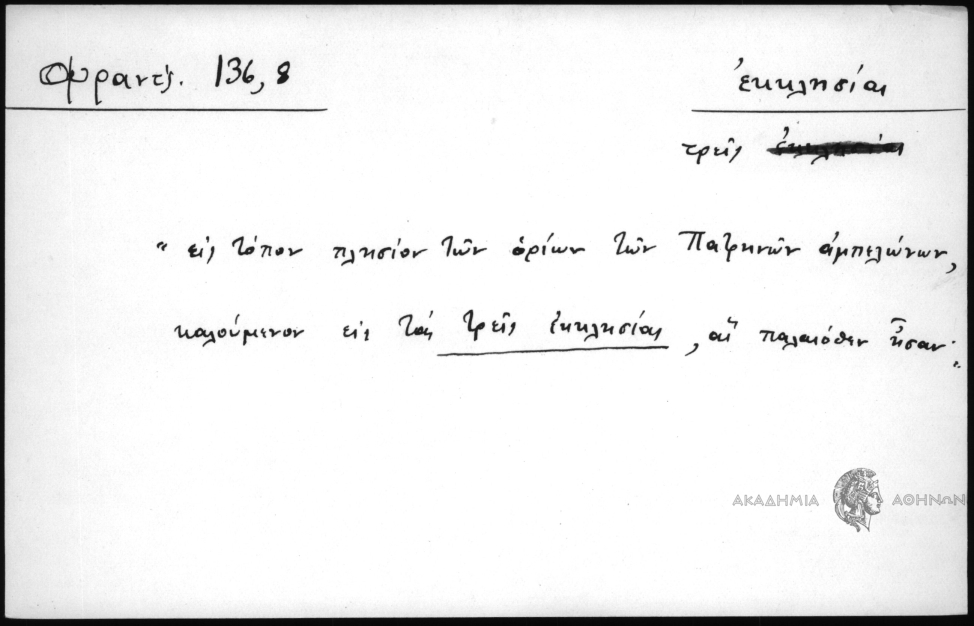 Φραντζ. 136, 8
ἐκκλησίαι
τρεῖς
" εἰς τόπον πλησίον τῶν ὁρίων τῶν Πατρηνῶν ἀμπελώνων,
καλούμενον εἰς τὰς τρεῖς ἐκκλησίας, αἳ παλαιόθεν ἦσαν· "
ΑΚΑΔΗΜΙΑ ΑΘΗΝΩΝ